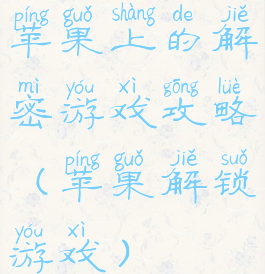 píng guǒ shàng de jiě
苹果上的解
mì yóu xì gōng lüè
密游戏攻略
píng guǒ jiě suǒ
（苹果解锁
yóu xì
游戏）